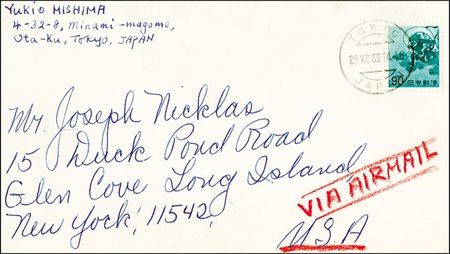 Yukio MISHIMA
4-32-8, Minami-magome,
Ota-Ku, Tokyo, JAPAN
TOKYO
25 XII
JAPAN
90
日本郵便
Mr. Joseph Nicklas
15 Duck Pond Road
Glen Cove Long Island
New York, 11542,
VIA AIRMAIL
U.S.A